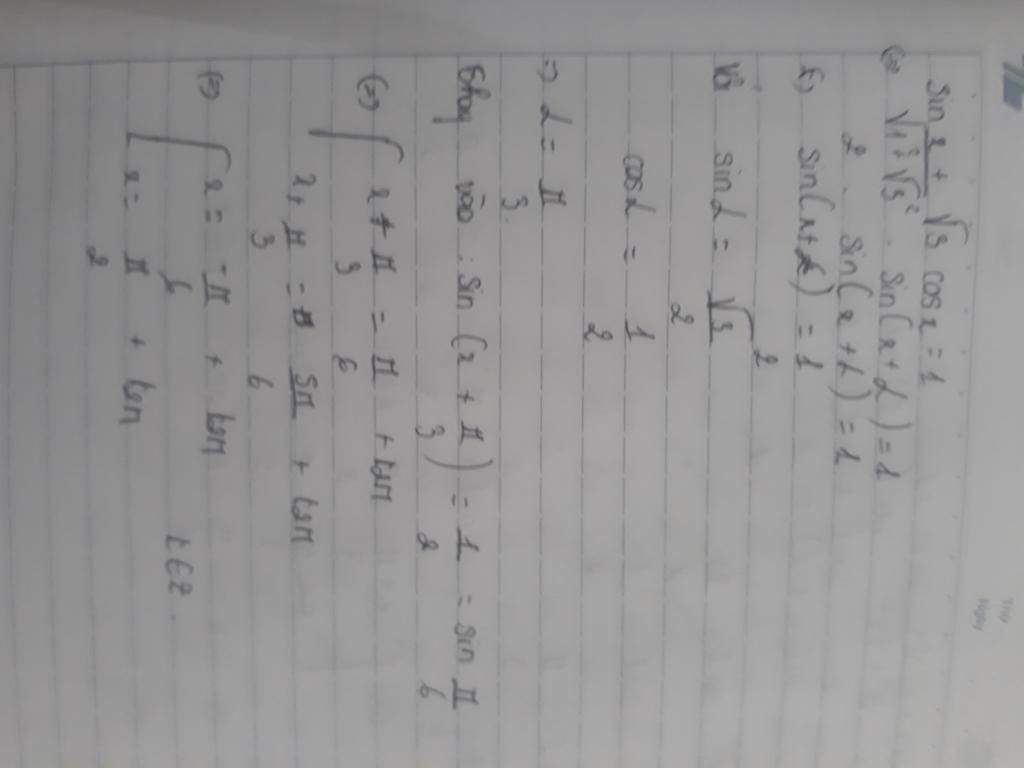 Thứ
Ngày
sin x + √3 cos x = 1
(=) √1²+√3² . sin(x+α) = 1
2 . sin(x+α) = 1
(=) sin(x+α) = 1/2
Với sin α = √3/2
cos α = 1/2
=) α = π/3
Thay vào : sin (x + π/3) = 1/2 = sin π/6
(=) [ x + π/3 = π/6 + k2π
x + π/3 = 5π/6 + k2π
(=) [ x = -π/6 + k2π
x = π/2 + k2π
k∈Z.